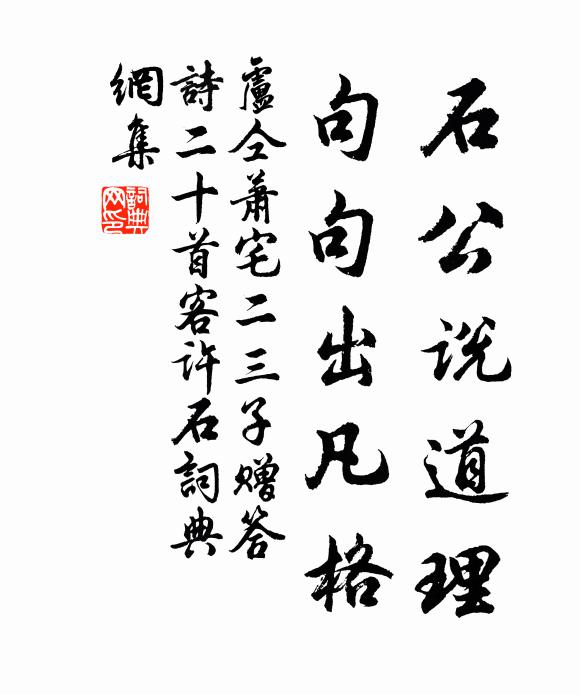 石公说道理
句句出凡格
盧仝蕭宅二三子赠答
詩二十首客许石詞典
網集
詞典
网印